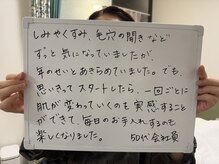 しみやくすみ、毛穴の開きなど
ずっと気になっていましたが、
年のせいとあきらめていました。でも、
思いきってスタートしたら、一回ごとに
肌が変わっていくのも実感すること
ができて、毎日のお手入れするのも
楽しくなりました。
50代会社員